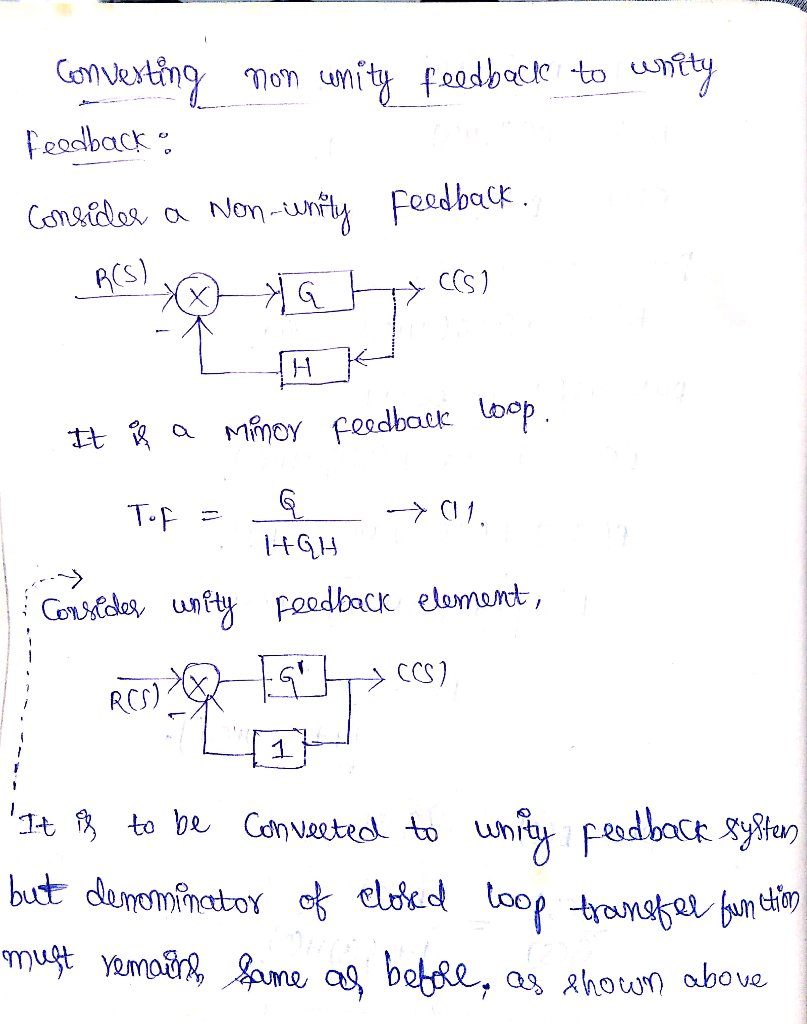 Converting non unity feedback to unity
Feedback :
Consider a Non-unity Feedback.
R(S) X G C(S)
-
H
It is a minor feedback loop.
T.F = G / 1+GH → (1).
Consider unity feedback element,
R(S) X G' C(S)
-
1
It is to be Conveeted to unity feedback system
but denominator of closed loop transfer function
must remains same as before, as shown above